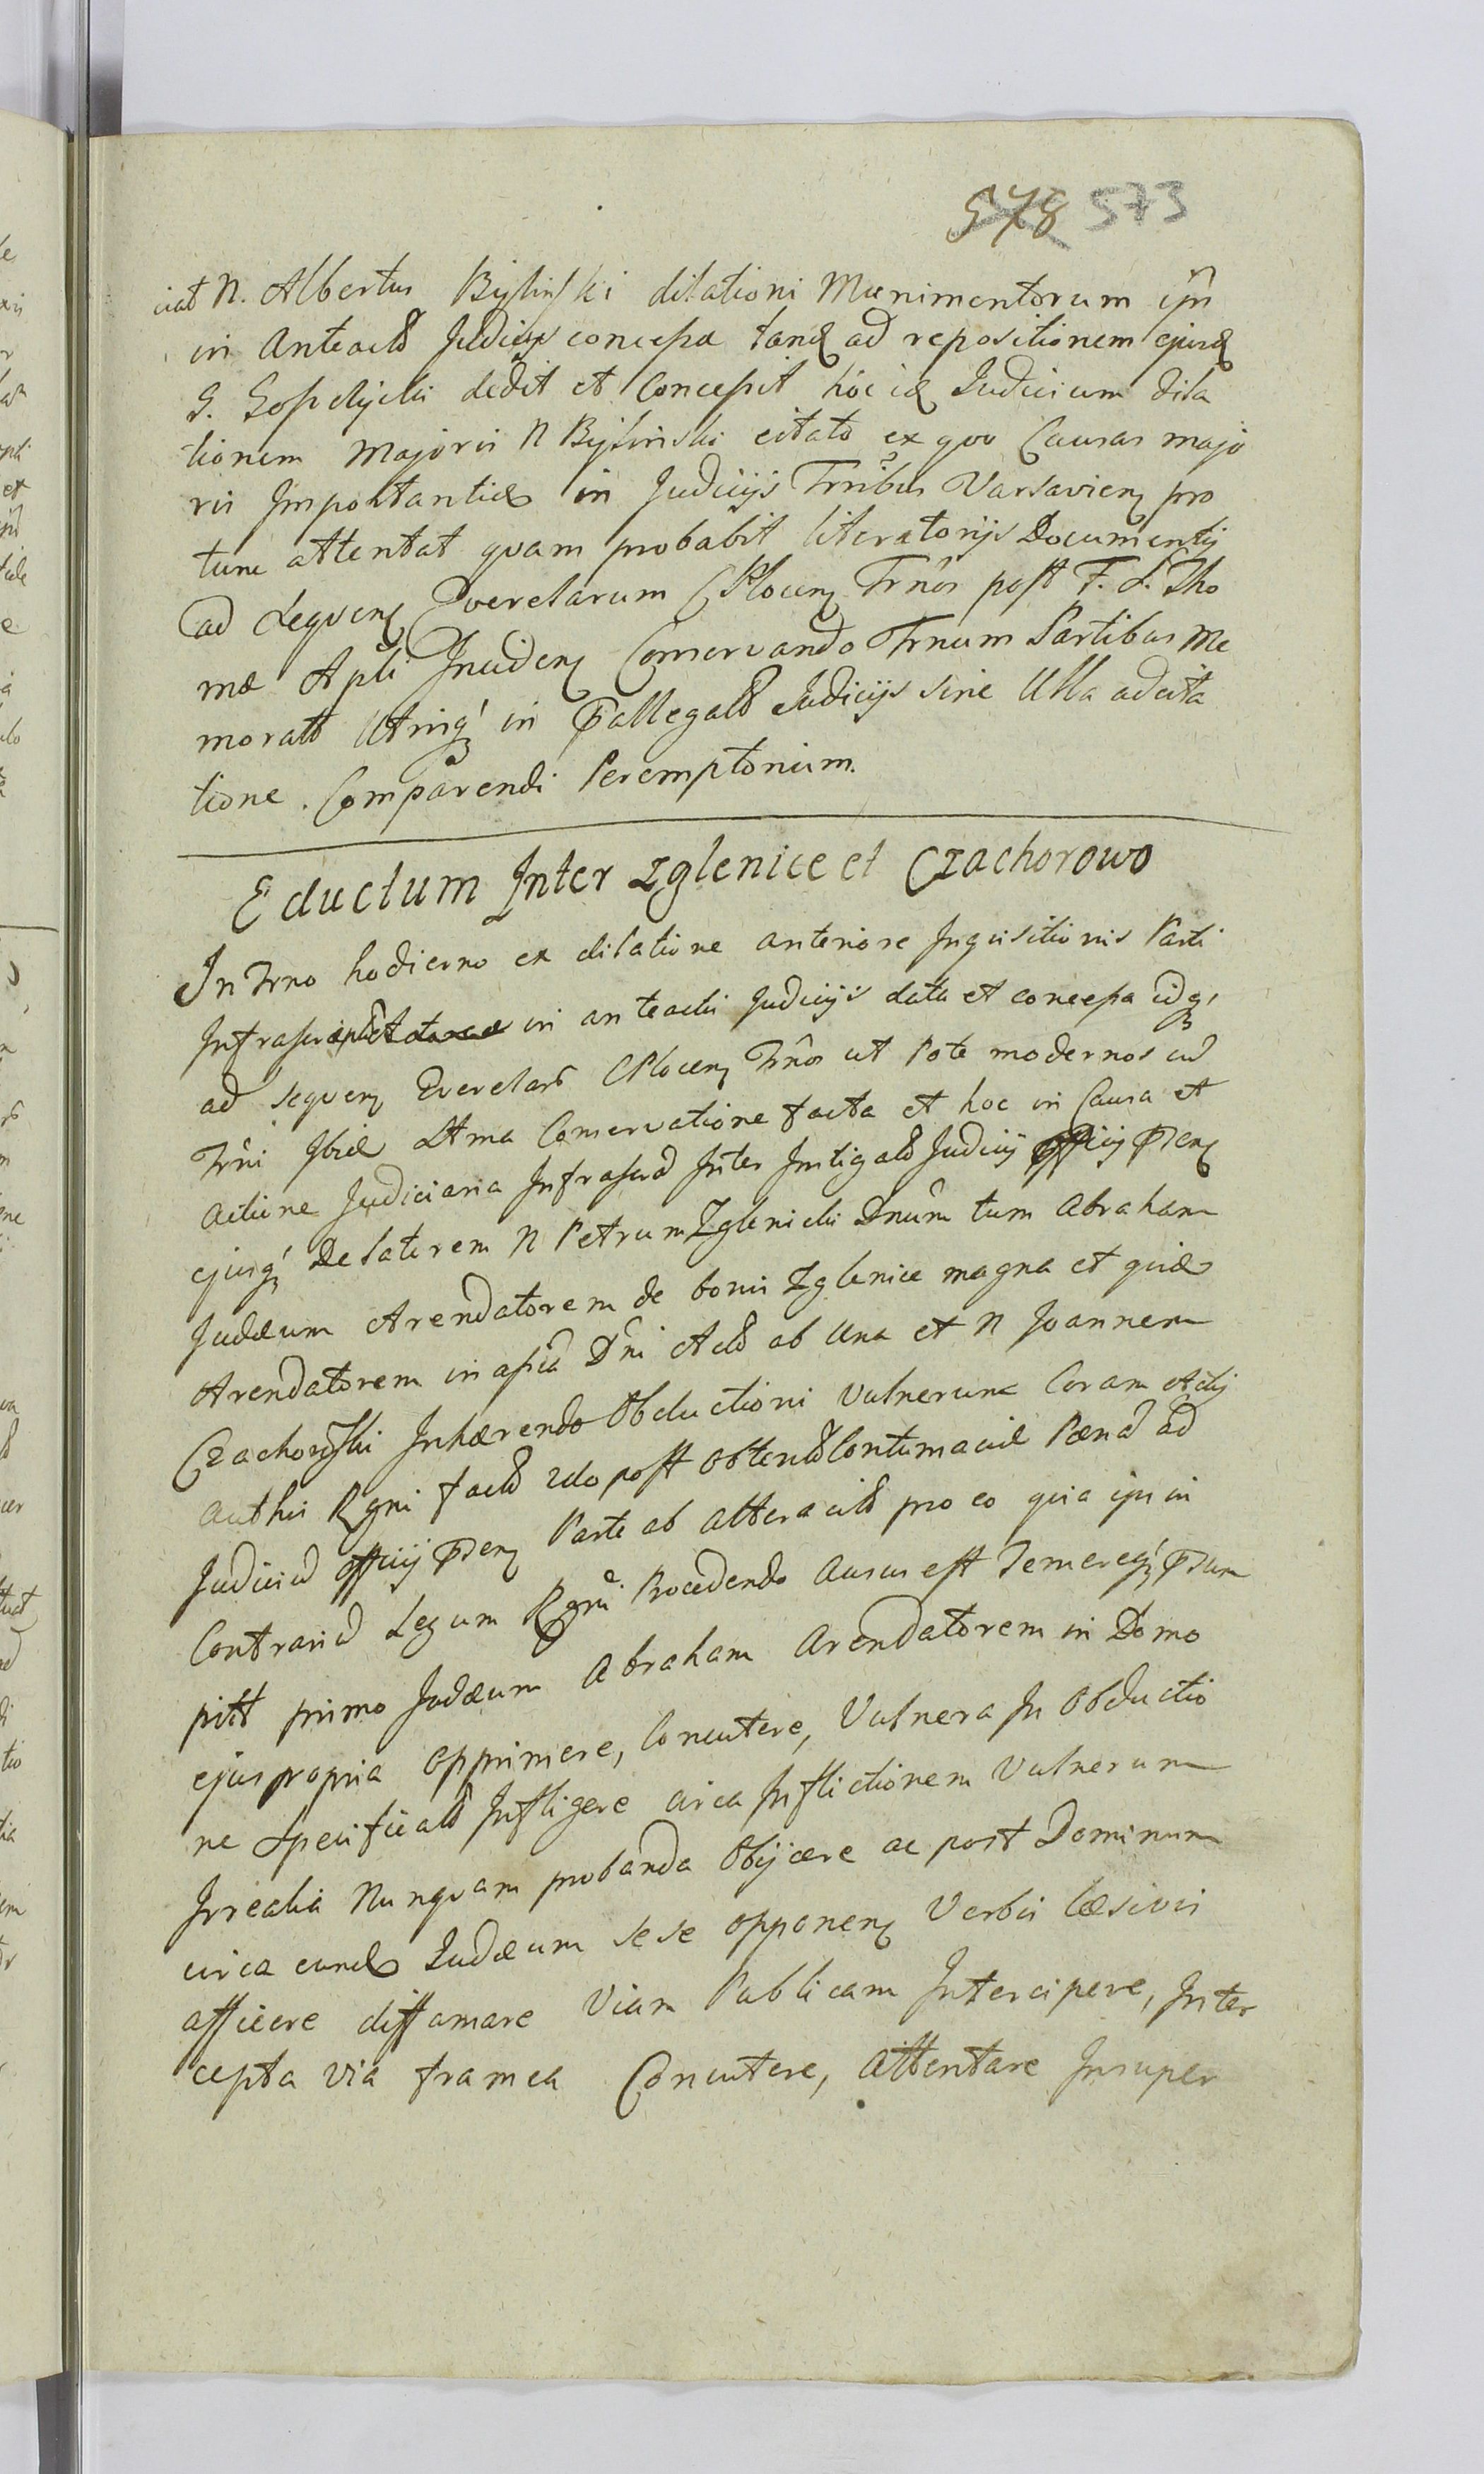 578 573
ciat N. Albertus Bylinski dilationi Munimentorum ipi
in Anteactis Judicijs concessa tand ad repositionem ejusd
G. dedit et Concessit hoc id Judicium dila
tionem Majoris N Bylinski citato ex quo Causas majo
ris Importantiæ in Judicijs Trnlibus Varsavien pro
tunc attentat quam probabit literatorijs Documentis
ad Sequen Querelarum CPlocen Trnos post F. S. Tho
mæ Apli Inciden Conservando Trnum Partibus Me
moratis Utrinq in Pallegatis Judicijs sine Ulla adcita
tione. Comparendi Peremptorium.
Eductum Inter Zglenice et Czachorowo
In Trno hodierno ex dilatione anteriore Inquisitionis Parti
Infrascriptæ in anteactis Judicijs data et concessa idq
ad sequen Querelars CPlocen Trnos ut Pote modernos cu
Trni Ibid Ltma Conservatione facta et hoc in Causa et
actione Judiciaria Infrascrad Inter Instigatis Judicij officij Pden
ejusq Delatorem N Petrum Zglenicki Dnum tum Abraham
Judæum Arendatorem de bonis Zglenice magna et quid
Arendatorem in assia Dni Actis ab Una et N Joannem
Czachorski Inhærendo Obductioni Vulnerum Coram Actis
authis Rgni factis 2do post obtentis Contumaciæ Pænad ad
Judiciad officij Pden Parte ab altera citts pro eo quia ipse in
Contrariu Legum Rgni Procedendo Ausus est Temereq Pdum
pitt primo Judæum Abraham Arendatorem in Domo
ejus propria opprimere, Concutere, Vulnera In Obductio
ne Specificatis Infligere circa Inflictionem Vulnerum
Irrealia Nunquam probanda Objicere ac post Dominum
circa eund Judæum sese opponen Verbis læsivis
afficere diffamare Viam Publicam Intercipere, Inter
cepta via framea Concutere, Attentare Insuper